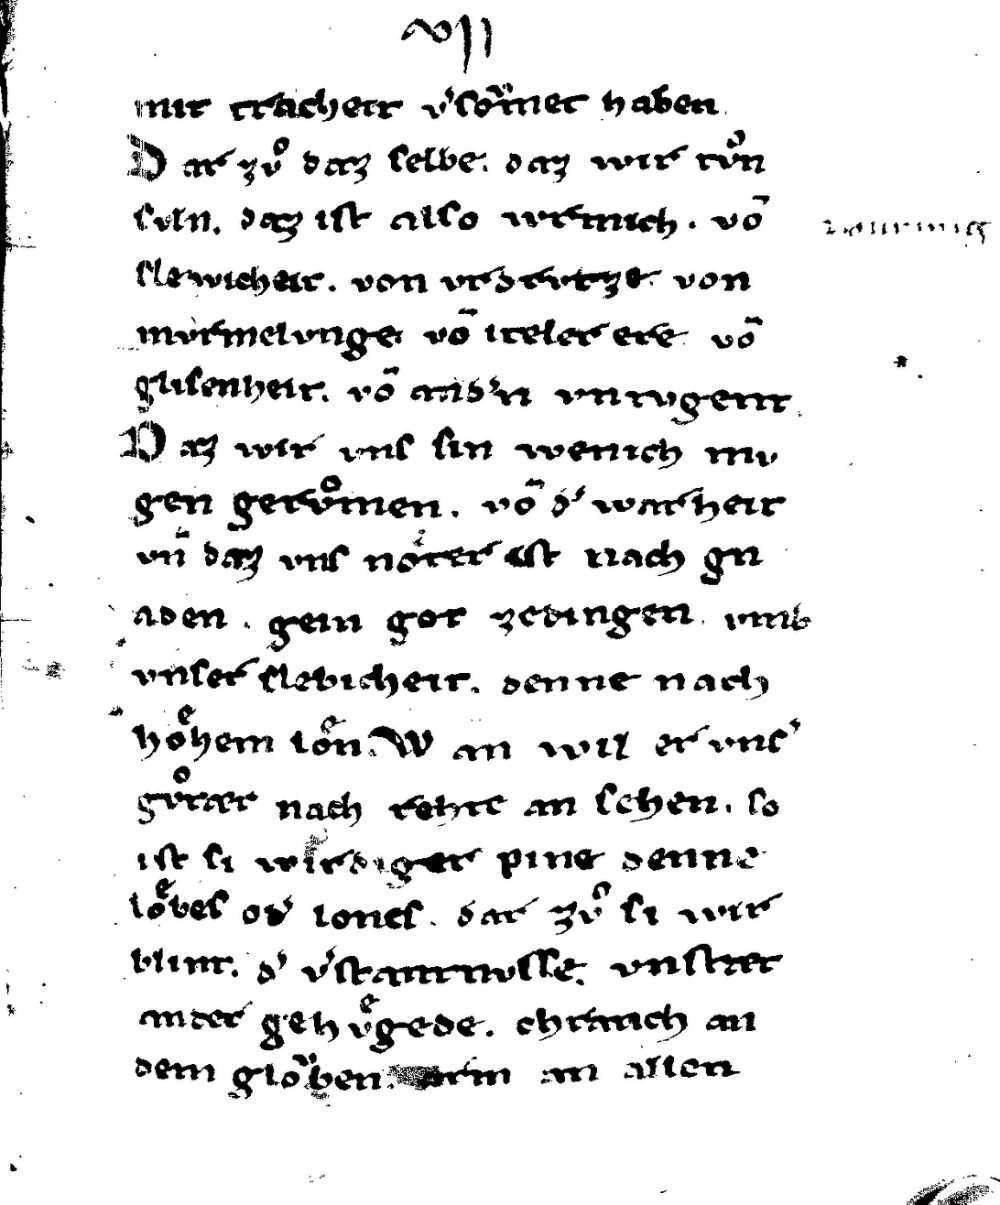 VII
mit tracheit v'soͮmet haben
Dar zvͦ daz selbe. daz wir tvͦn
svln. daz ist also wrmich. vō
slewicheit. von vrdrvtze. von
mvrmelvnge. vō iteler ere. vō
glisenheit. vō and'n vntvgent.
Daz wir vns sin wenich mv
gen gervͦmen. vō d' warheit
vn̄ daz vns noter ist nach gn
aden. gein got zedingen. vmb
vnser slebicheit. denne nach
hoͤhem loͤn. Wan wil er vns'
gvͦtæt nach rehte an sehen. so
ist si wirdiger pine denne
loͤbes od' lones. dar zvͦ si wir
blint. d' v'stantnusse. vnstæt
anter gehvͤgede. chranch an
dem gloͮben. arm an allen